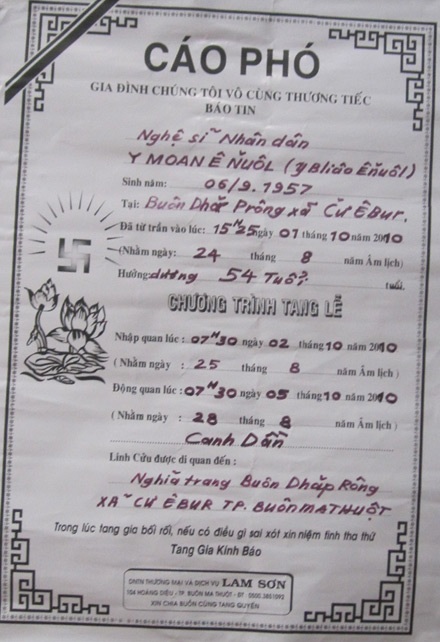 CÁO PHÓ
GIA ĐÌNH CHÚNG TÔI VÔ CÙNG THƯƠNG TIẾC
BÁO TIN
Nghệ sĩ Nhân dân
Y MOAN Ê ÑUÔL (Y Bliêo Êñuôl)
Sinh năm: 06/9.1957
Tại: Buôn Dhă Prông xã Cư ÊBur.
Đã từ trần vào lúc: 15H25 ngày 01 tháng 10 năm 2010
(Nhằm ngày: 24 tháng 8 năm Âm lịch)
Hưởng: dương 54 Tuổi tuổi.
CHƯƠNG TRÌNH TANG LỄ
Nhập quan lúc : 07H30 ngày 02 tháng 10 năm 2010
( Nhằm ngày : 25 tháng 8 năm Âm lịch )
Động quan lúc : 07H30 ngày 05 tháng 10 năm 2010
( Nhằm ngày : 28 tháng 8 năm Âm lịch )
Canh Dần
Linh Cữu được di quan đến :
Nghĩa trang Buôn Dhăp Rông
XÃ CƯ ÊBUR TP. BUÔN MA THUỘT
Trong lúc tang gia bối rối, nếu có điều gì sai xót xin niệm tình tha thứ
Tang Gia Kính Báo
THƯƠNG MẠI VÀ DỊCH VỤ LAM SƠN
104 HOÀNG DIỆU - TP. BUÔN MA THUỘT - ĐT: 0500.3851092
XIN CHIA BUỒN CÙNG TANG QUYẾN